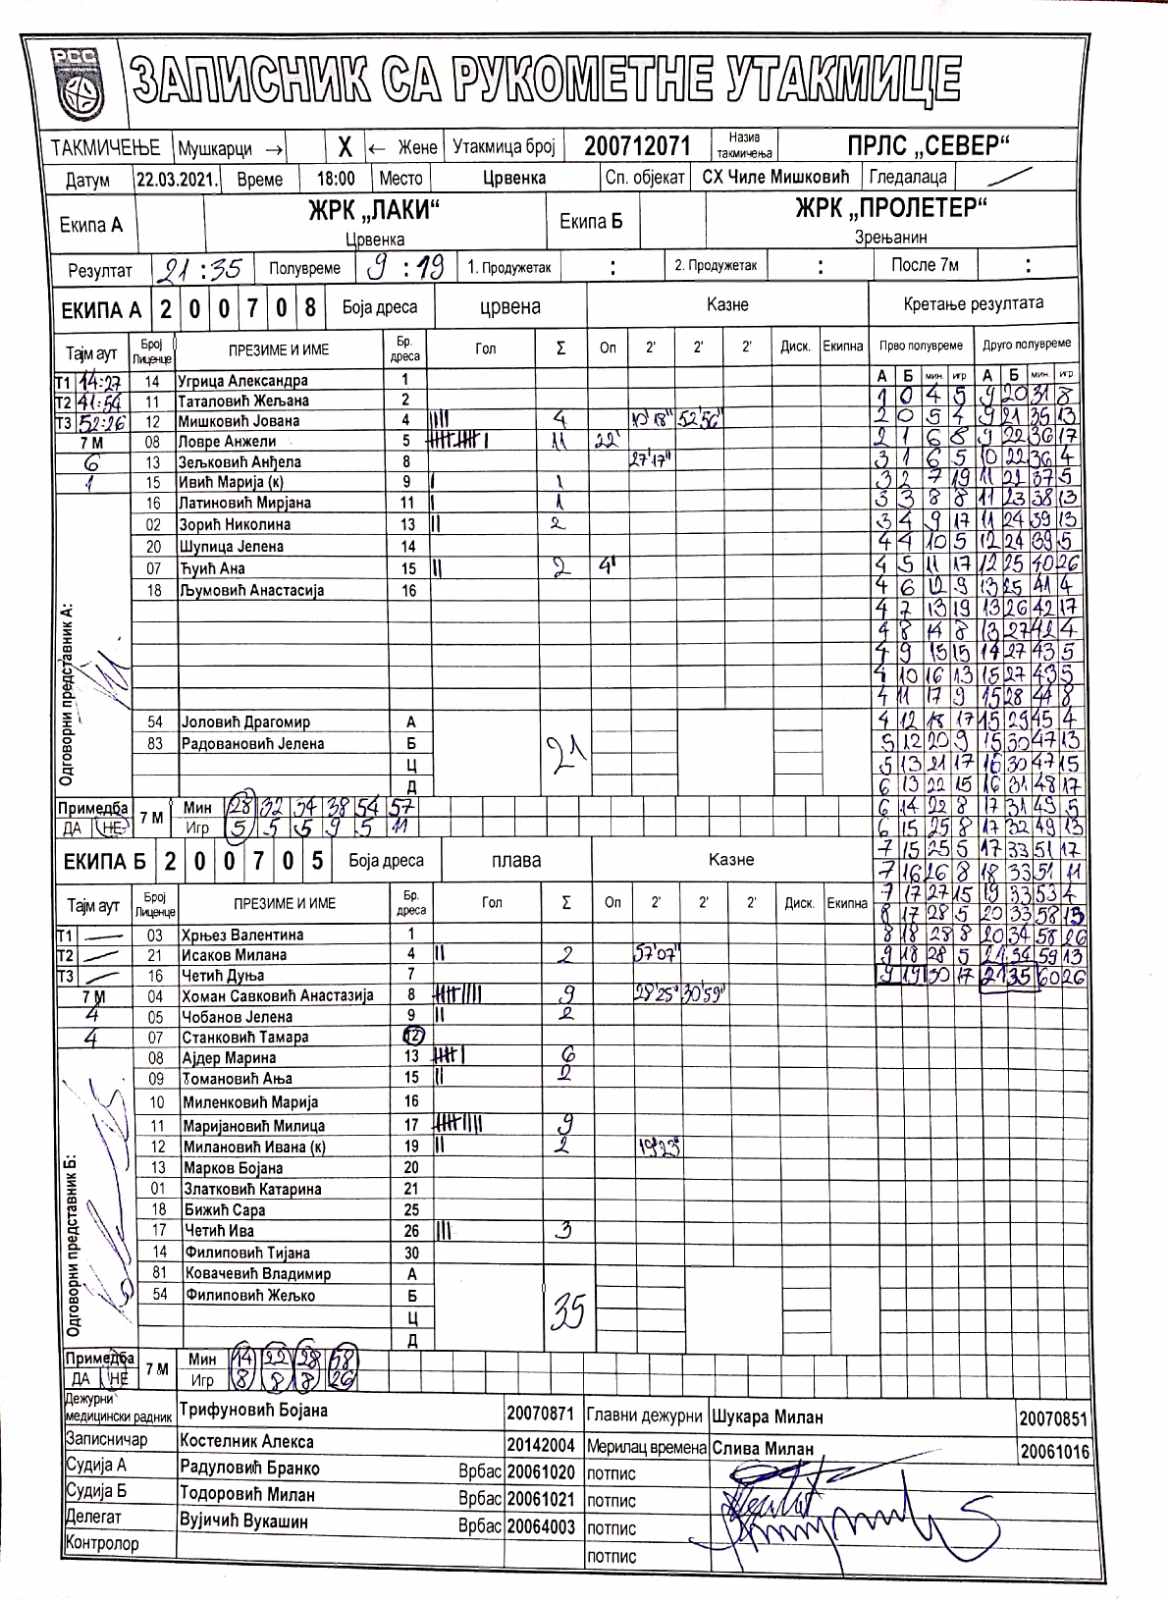 РСС
ЗАПИСНИК СА РУКОМЕТНЕ УТАКМИЦЕ
ТАКМИЧЕЊЕ Мушкарци → X ← Жене Утакмица број 200712071 Назив такмичења ПРЛС „СЕВЕР“
Датум 22.03.2021. Време 18:00 Место Црвенка Сп. објекат СХ Чиле Мишковић Гледалаца
Екипа А ЖРК „ЛАКИ“ Екипа Б ЖРК „ПРОЛЕТЕР“
Црвенка Зрењанин
Резултат 21:35 Полувреме 9:19 1. Продужетак : 2. Продужетак : После 7м :
ЕКИПА А 2 0 0 7 0 8 Боја дреса црвена Казне Кретање резултата
Тајм аут Број Лиценце ПРЕЗИМЕ И ИМЕ Бр. дреса Гол Σ Оп 2' 2' 2' Диск. Екипна Прво полувреме Друго полувреме
А Б мин. игр А Б мин. игр
Т1 14:27 14 Угрица Александра 1 1 0 4 5 9 20 31 8
Т2 41:54 11 Таталовић Жељана 2 2 0 5 4 9 21 35 13
Т3 52:26 12 Мишковић Јована 4 IIII 4 10'18" 52'56" 2 1 6 8 9 22 36 17
7 М 08 Ловре Анжели 5 11 22' 3 1 6 5 10 22 36 4
6 13 Зељковић Анђела 8 27'17" 3 2 7 19 11 22 37 5
1 15 Ивић Марија (к) 9 I 1 3 3 8 8 11 23 38 13
16 Латиновић Мирјана 11 I 1 3 4 9 17 11 24 39 13
02 Зорић Николина 13 II 2 4 4 10 5 12 24 39 5
20 Шупица Јелена 14 4 5 11 17 12 25 40 26
07 Ћуић Ана 15 II 2 4' 4 6 12 9 13 25 41 4
18 Љумовић Анастасија 16 4 7 13 19 13 26 42 17
4 8 14 8 13 27 42 4
4 9 15 15 14 27 43 5
4 10 16 13 15 27 43 5
4 11 17 9 15 28 44 8
Одговорни представник А:
54 Јоловић Драгомир А 4 12 18 17 15 29 45 4
83 Радовановић Јелена Б 21 5 12 20 9 15 30 47 13
Ц 5 13 21 17 16 30 47 15
Д 6 13 22 15 16 31 48 17
Примедба 7 М Мин 28 32 34 38 54 57 6 14 22 8 17 31 49 5
ДА НЕ Игр 5 5 5 9 5 11 6 15 25 8 17 32 49 13
ЕКИПА Б 2 0 0 7 0 5 Боја дреса плава Казне 7 15 25 5 17 33 51 17
7 16 26 8 18 33 51 11
Тајм аут Број Лиценце ПРЕЗИМЕ И ИМЕ Бр. дреса Гол Σ Оп 2' 2' 2' Диск. Екипна 7 17 27 15 19 33 53 4
8 17 28 5 20 33 58 13
Т1 03 Хрњез Валентина 1 8 18 28 8 20 34 58 26
Т2 21 Исаков Милана 4 II 2 57'07" 9 18 28 5 21 34 59 13
Т3 16 Четић Дуња 7 9 19 30 17 21 35 60 26
7 М 04 Хоман Савковић Анастазија 8 9 28'25" 30'59"
4 05 Чобанов Јелена 9 II 2
4 07 Станковић Тамара 12
08 Ајдер Марина 13 6
09 Томановић Ања 15 II 2
10 Миленковић Марија 16
11 Маријановић Милица 17 9
12 Милановић Ивана (к) 19 II 2 19'23"
13 Марков Бојана 20
01 Златковић Катарина 21
18 Бижић Сара 25
17 Четић Ива 26 III 3
14 Филиповић Тијана 30
Одговорни представник Б:
81 Ковачевић Владимир А
54 Филиповић Жељко Б 35
Ц
Д
Примедба 7 М Мин 14 22 28 58
ДА НЕ Игр 8 8 8 26
Дежурни медицински радник Трифуновић Бојана 20070871 Главни дежурни Шукара Милан 20070851
Записничар Костелник Алекса 20142004 Мерилац времена Слива Милан 20061016
Судија А Радуловић Бранко Врбас 20061020 потпис
Судија Б Тодоровић Милан Врбас 20061021 потпис
Делегат Вујичић Вукашин Врбас 20064003 потпис
Контролор потпис